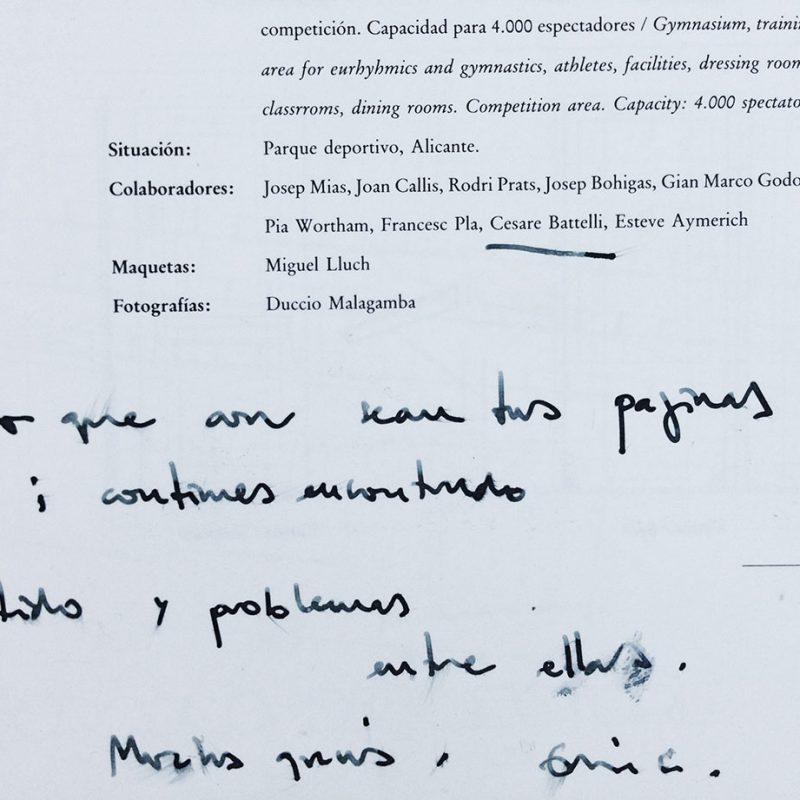 competición. Capacidad para 4.000 espectadores / Gymnasium, traini
area for eurhyhmics and gymnastics, athletes, facilities, dressing room
classrroms, dining rooms. Competition area. Capacity: 4.000 spectato
Situación: Parque deportivo, Alicante.
Colaboradores: Josep Mias, Joan Callis, Rodri Prats, Josep Bohigas, Gian Marco Godo
Pia Wortham, Francesc Pla, Cesare Battelli, Esteve Aymerich
Maquetas: Miguel Lluch
Fotografías: Duccio Malagamba
que aun sean tus paginas
continues encontrado
y problemas
entre ellas.